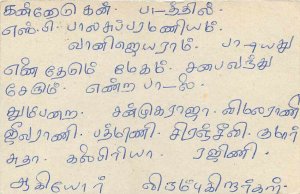 கன்னெடுகன். பாடத்தில்
எஸ். பி. பாலசுப்பரமணியம்
வாணிஜெயராம். பாடியது
எண் தேடும் மேகம். சபை வந்து
சேரும். என்ற பாடல்
தும்பறை. சண்முகராஜா. விமலராணி
ஜீவராணி. பத்மினி. சிரஞ்சீவி. குமார்
சுதா. கல்பிரியா. ரஜினி.
ஆகியோர் விரும்புகிறார்கள்.